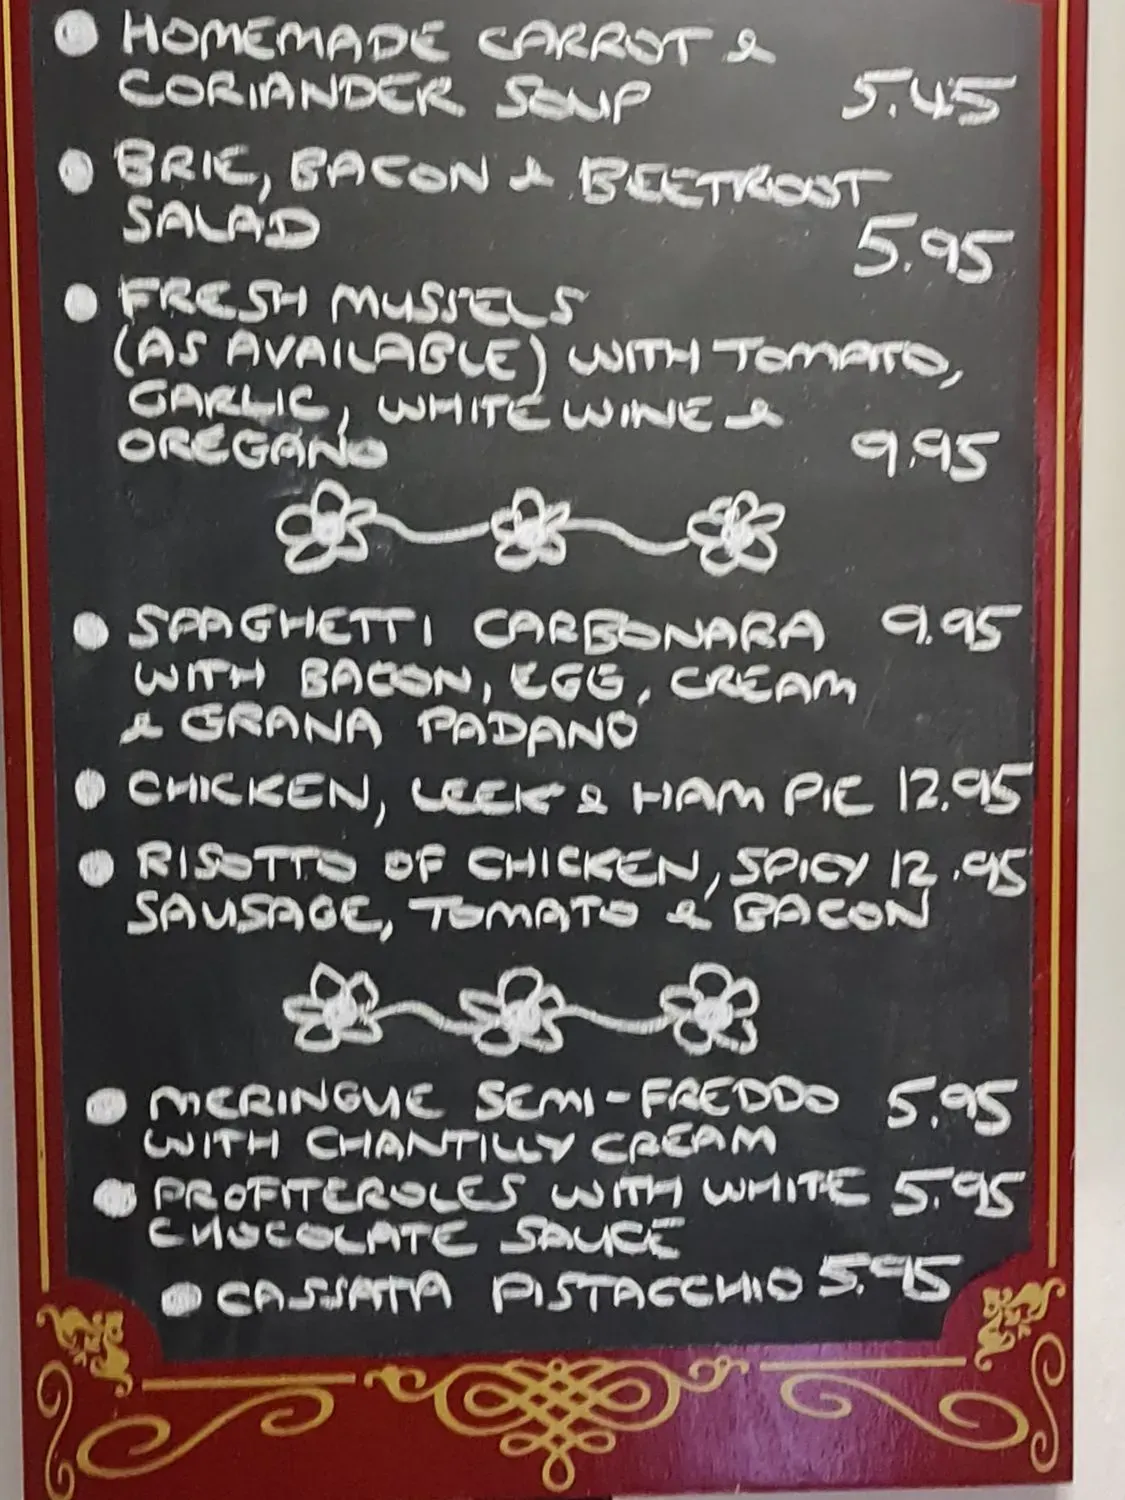 HOMEMADE CARROT &
CORIANDER SOUP 5.45
BRIE, BACON & BEETROOT
SALAD 5.95
FRESH MUSSELS
(AS AVAILABLE) WITH TOMATO,
GARLIC, WHITE WINE &
OREGANO 9.95
SPAGHETTI CARBONARA 9.95
WITH BACON, EGG, CREAM
& GRANA PADANO
CHICKEN, LEEK & HAM PIE 12.95
RISOTTO OF CHICKEN, SPICY 12.95
SAUSAGE, TOMATO & BACON
MERINGUE SEMI-FREDDO 5.95
WITH CHANTILLY CREAM
PROFITEROLES WITH WHITE 5.95
CHOCOLATE SAUCE
CASSATA PISTACCHIO 5.95